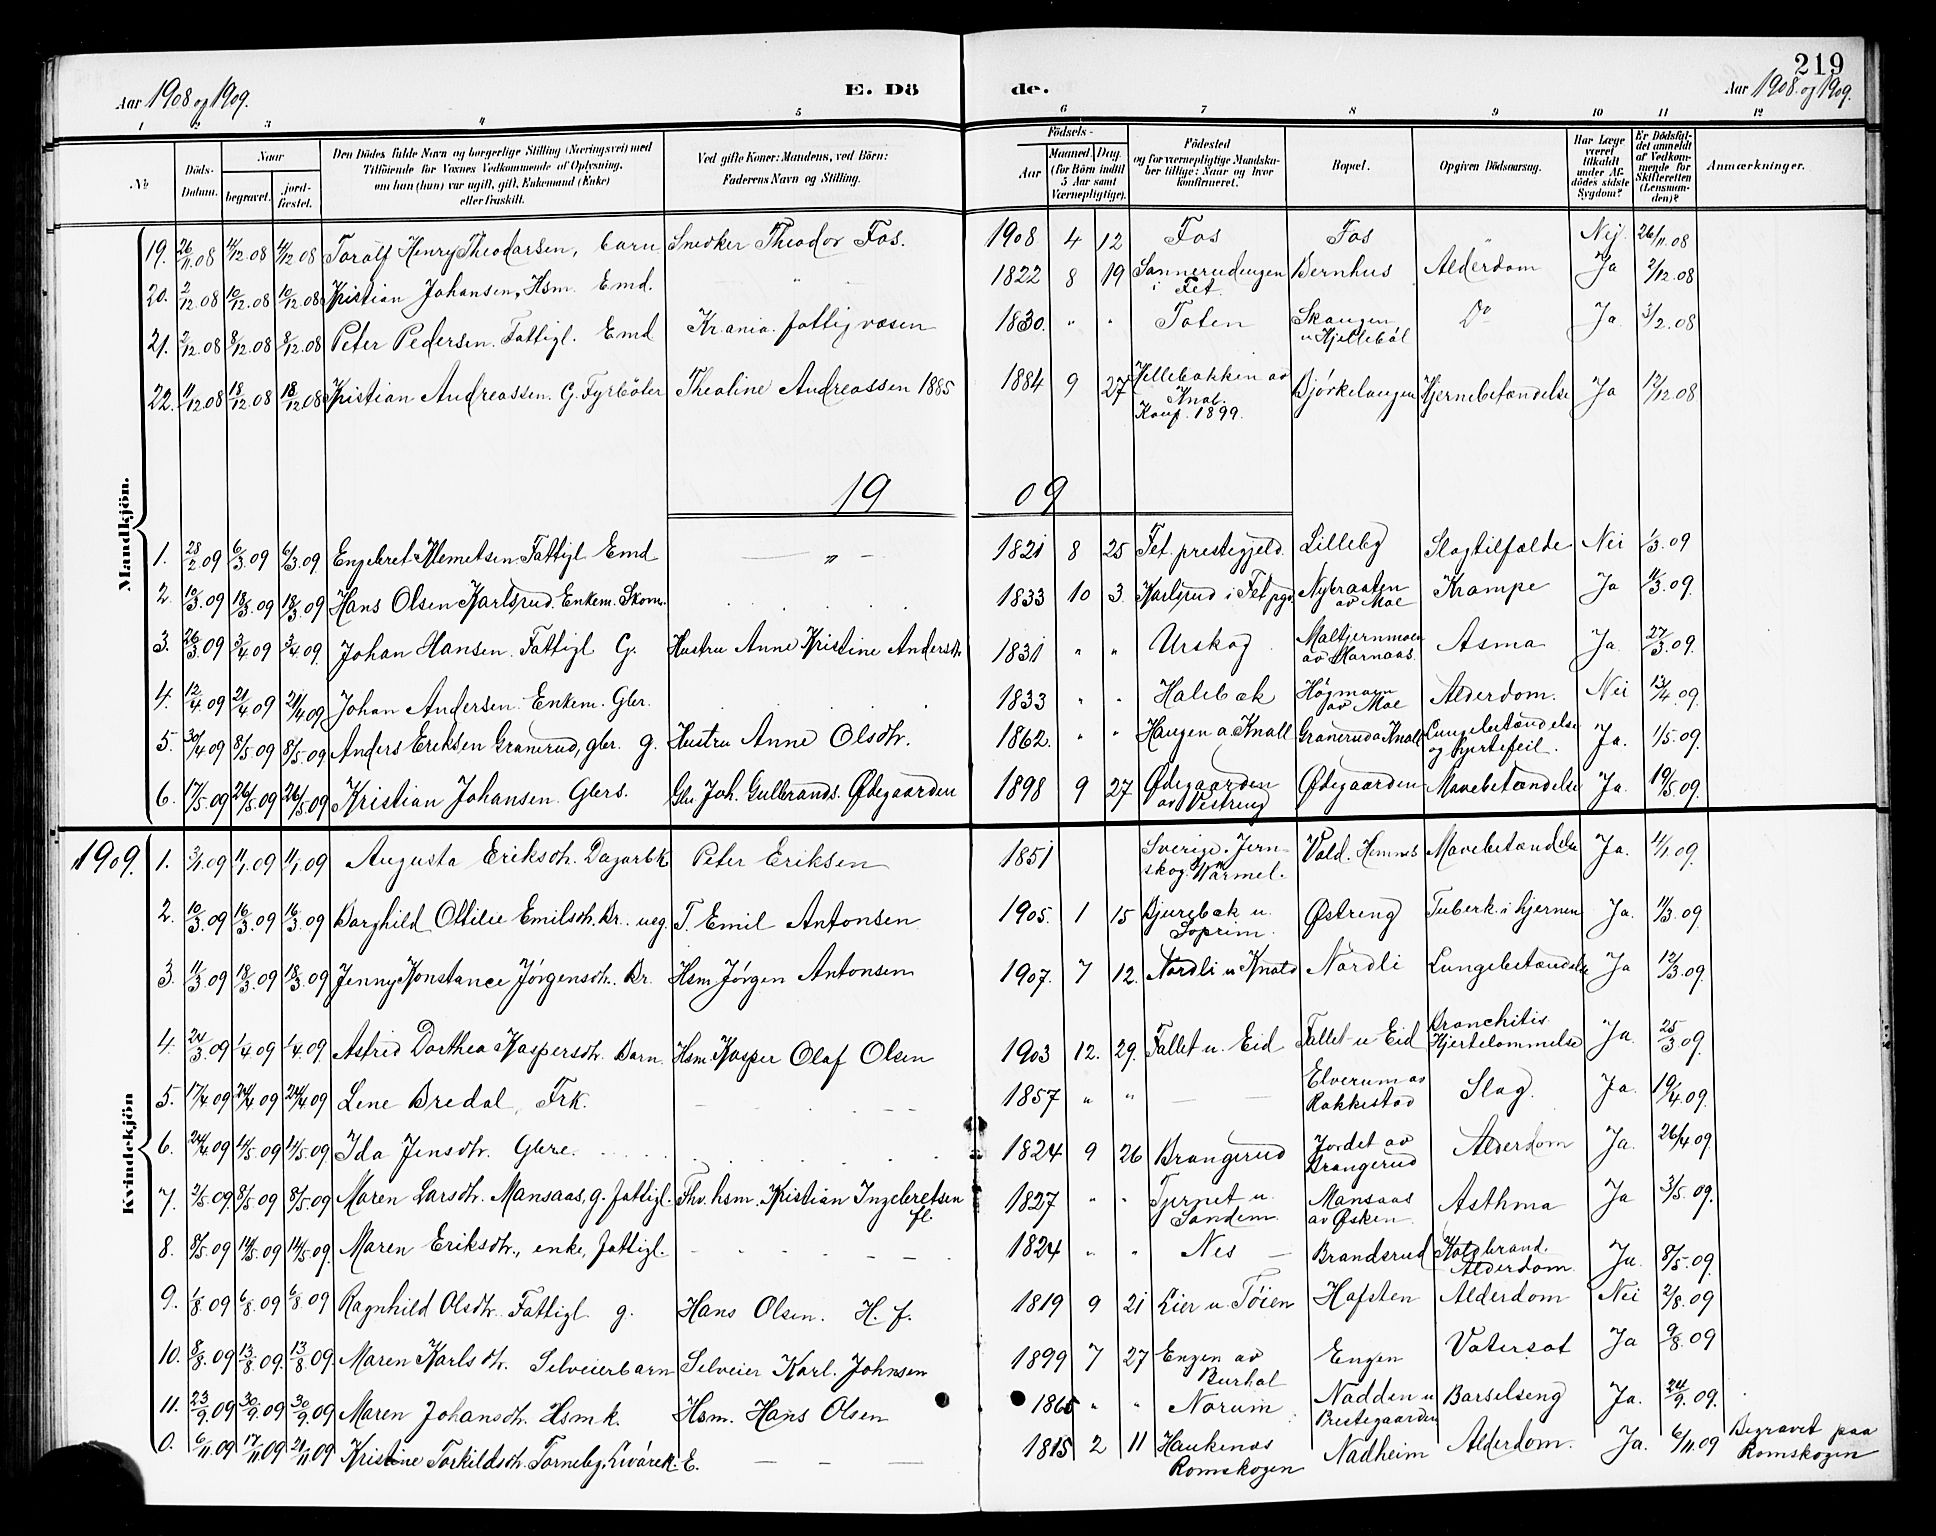 219
Aar 1908 og 1909.
E. Döde.
Aar 1908 og 1909.
1 2 3 4 5 6 7 8 9 10 11 12
No
Döds-Datum.
Naar
begravet.
jordfæstet.
Den Dödes fulde Navn og borgerlige Stilling (Næringsvei) med Tilföiende for Voxnes Vedkommende af Oplysning, om han (hun) var ugift, gift, Enkemand (Enke) eller fraskilt.
Ved gifte Koner: Mandens, ved Börn: Faderens Navn og Stilling.
Födsels-
Aar
Maaned. Dag.
(for Börn indtil 5 Aar samt Værnepligtige).
Födested og for værnepligtige Mandskaber tillige: Naar og hvor konfirmeret.
Bopæl.
Opgiven Dödsaarsag.
Har Læge været tilkaldt under Afdödes sidste Sygdom?
Er Dödsfaldet anmeldt af Vedkommende for Skifteretten (Lensmanden)?
Anmærkninger.
Mandkjön.
19. 26/11.08 4/12.08 4/12.08 Toralf Henry Theodorsen, barn Snedker Theodor Fos. 1908 4 12 Fos Fos " Nej. 26/11.08
20. 2/12.08 10/12.08 10/12.08 Kristian Johansen, Hsm. Emd. " 1822 8 19 Sannerudengen i Fet. Bernhus Alderdom Ja 2/12.08
21. 2/12.08 8/12.08 8/12.08 Peter Pedersen. Fattigl. Emd Kr.ania. fattigvæsen 1830. " " Toten Skaugen u Hjellebøl Do Ja. 3/12.08
22. 11/12.08 18/12.08 18/12.08 Kristian Andreassen. G. Fyrbøter Thealine Andreassen 1885 1884 9 27 Hellebakken av Knal. Konf. 1899. Bjørkelangen Hjernebetændelse Ja 12/12.08
1909
1. 28/2.09 6/3.09 6/3.09 Engebret Klemetsen Fattigl Emd " 1821 8 25 Fet. prestegjeld. Lilleby Slagtilfælde Nei 1/3.09
2. 10/3.09 18/3.09 18/3.09 Hans Olsen Karlsrud. Enkem. Skom. 1833 10 3. Karlsrud i Fet pgd. Nybraaten av Moe Krampe Ja 11/3.09
3. 26/3.09 3/4.09 3/4.09. Johan Hansen. Fattigl G. Hustru Anne Kristine Andersdr. 1831 " " Urskog Maltjernmoen av Harnaas. Asma Ja. 27/3.09.
4. 12/4.09 21/4.09 21/4.09 Johan Andersen. Enkem. Gbr. 1833 " " Halebæk Høgmoen av Moe Alderdom. Nei 13/4.09.
5. 30/4.09 8/5.09 8/5.09 Anders Eriksen Granerud, gbr. g. Hustru Anne Olsdtr. 1862. " " Haugen a Knall Granerud a Knall Lungebetændelse og hjertefeil. Ja. 1/5.09.
6. 17/5.09 26/5.09 26/5.09 Kristian Johansen. Gbrs. Gbr Joh. Gulbrands. Ødegaarden 1898 9 27 Ødegaarden av Vestreng Ødegaarden Mavebetændelse Ja. 19/5.09.
Kvindekjön
1909. 1. 3/1.09 11/1.09 11/1.09 Augusta Eriksdtr. Dagarbk Peter Eriksen 1851 Sverige. Jernskog. Värmel. Vold. Hemnes Mavebetændelse Ja. 4/1.09.
2. 10/3.09 16/3.09 16/3.09 Borghild Ottilie Emilsdtr. Br. ueg. F. Emil Antonsen 1905. 1 15 Bjurebæk u. Soprim. Østreng Tuberk. i hjernen Ja. 11/3.09
3. 11/3.09 18/3.09 18/3.09 Jenny Konstance Jørgensdtr. Br. Hsm Jørgen Antonsen 1907. 7 12. Nordli u Knold Nordli Lungebetændelse Ja 12/3.09.
4. 24/3.09 1/4.09 1/4.09. Astrid Dorthea Kaspersdtr. Barn. Hsm. Kasper Olaf Olsen 1903 12. 29. Fallet u. Eid Fallet u Eid Bronchitis Hjertelammelse Ja. 25/3.09.
5. 17/4.09 24/4.09 24/4.09 Lene Bredal, Frk. 1857 " " Elverum av Rakkestad Slag. Ja. 19/4.09.
6. 24/4.09 14/5.09 14/5.09 Ida Jensdtr. Gbre. 1824 9 26 Brangerud Jordet av Brangerud Alderdom Ja. 26/4.09
7. 2/5.09. 8/5.09 8/5.09 Maren Larsdtr. Mansaas, g. fattigl. Fhv. hsm. Kristian Ingebretsen fl. 1827 " " Tjernet u. Sandem. Mansaas av Øsken Asthma Ja 3/5.09.
8. 8/5.09 14/5.09 14/5.09. Maren Eriksdtr., enke, fattigl. 1824 " " Nes Brandsrud Kolbrand. Alderdom. Ja. 8/5.09.
9. 1/8.09 6/8.09 6/8.09 Ragnhild Olsdtr. Fattigl. g. Hans Olsen. H. f. 1819 9 21 Lier u. Tøien Hafsten Alderdom Nei 2/8.09
10. 8/8.09 13/8.09. 13/8.09. Maren Karlsdtr. Selveierbarn Selveier Karl. Johnsen 1899 7 27 Engen av Burhol Engen Vatersot Ja 9/8.09
11. 23/9.09 30/9.09 30/9.09 Maren Johansdtr. Hsmk. Hsm. Hans Olsen 1865 " " Norum Nadden u Prestegaarden Barselseng Ja. 24/9.09.
0. 6/11.09 17/11.09 21/11.09 Kristine Torkildsdtr. Torneby, E. 1815 2 11 Haukenæs Romskogen Nadheim Alderdom. Ja. 6/11.09 Begravet paa Romskogen